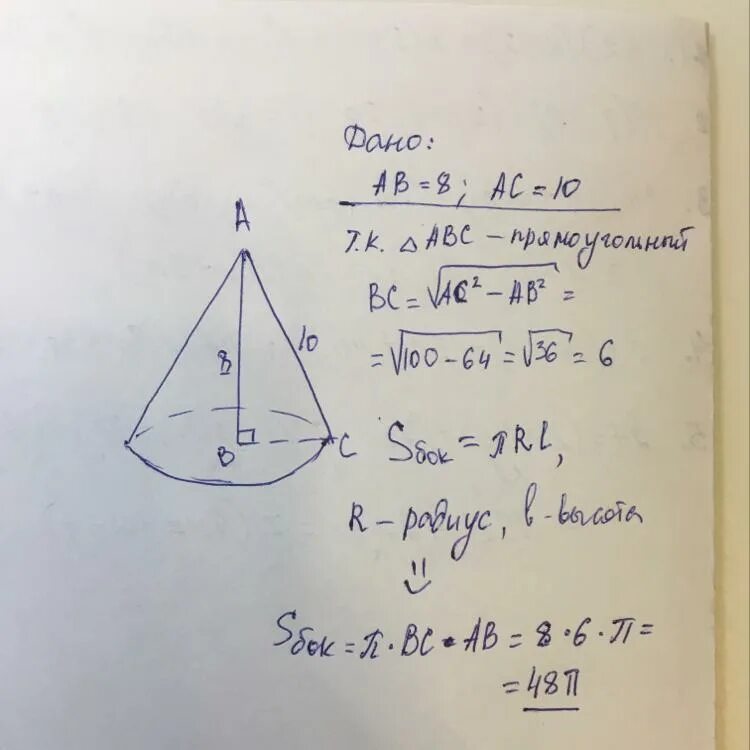 Дано:
AB = 8; AC = 10
A
т.к. △ ABC – прямоугольный
BC = √AC² – AB² =
8
10
= √100 – 64 = √36 = 6
B
C
Sбок = πRl,
R – радиус, l – высота
⇓
Sбок = π · BC · AB = 8 · 6 · π =
= 48π